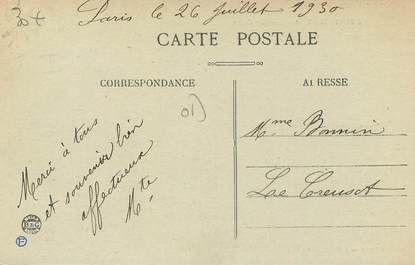 30+
Paris le 26 Juillet 1930
CARTE POSTALE
CORRESPONDANCE
A1 RESSE
01)
Merci à tous
et souvenir bien
affectueux
M^te
M^me Bonnin
Le Creusot
B&G
F